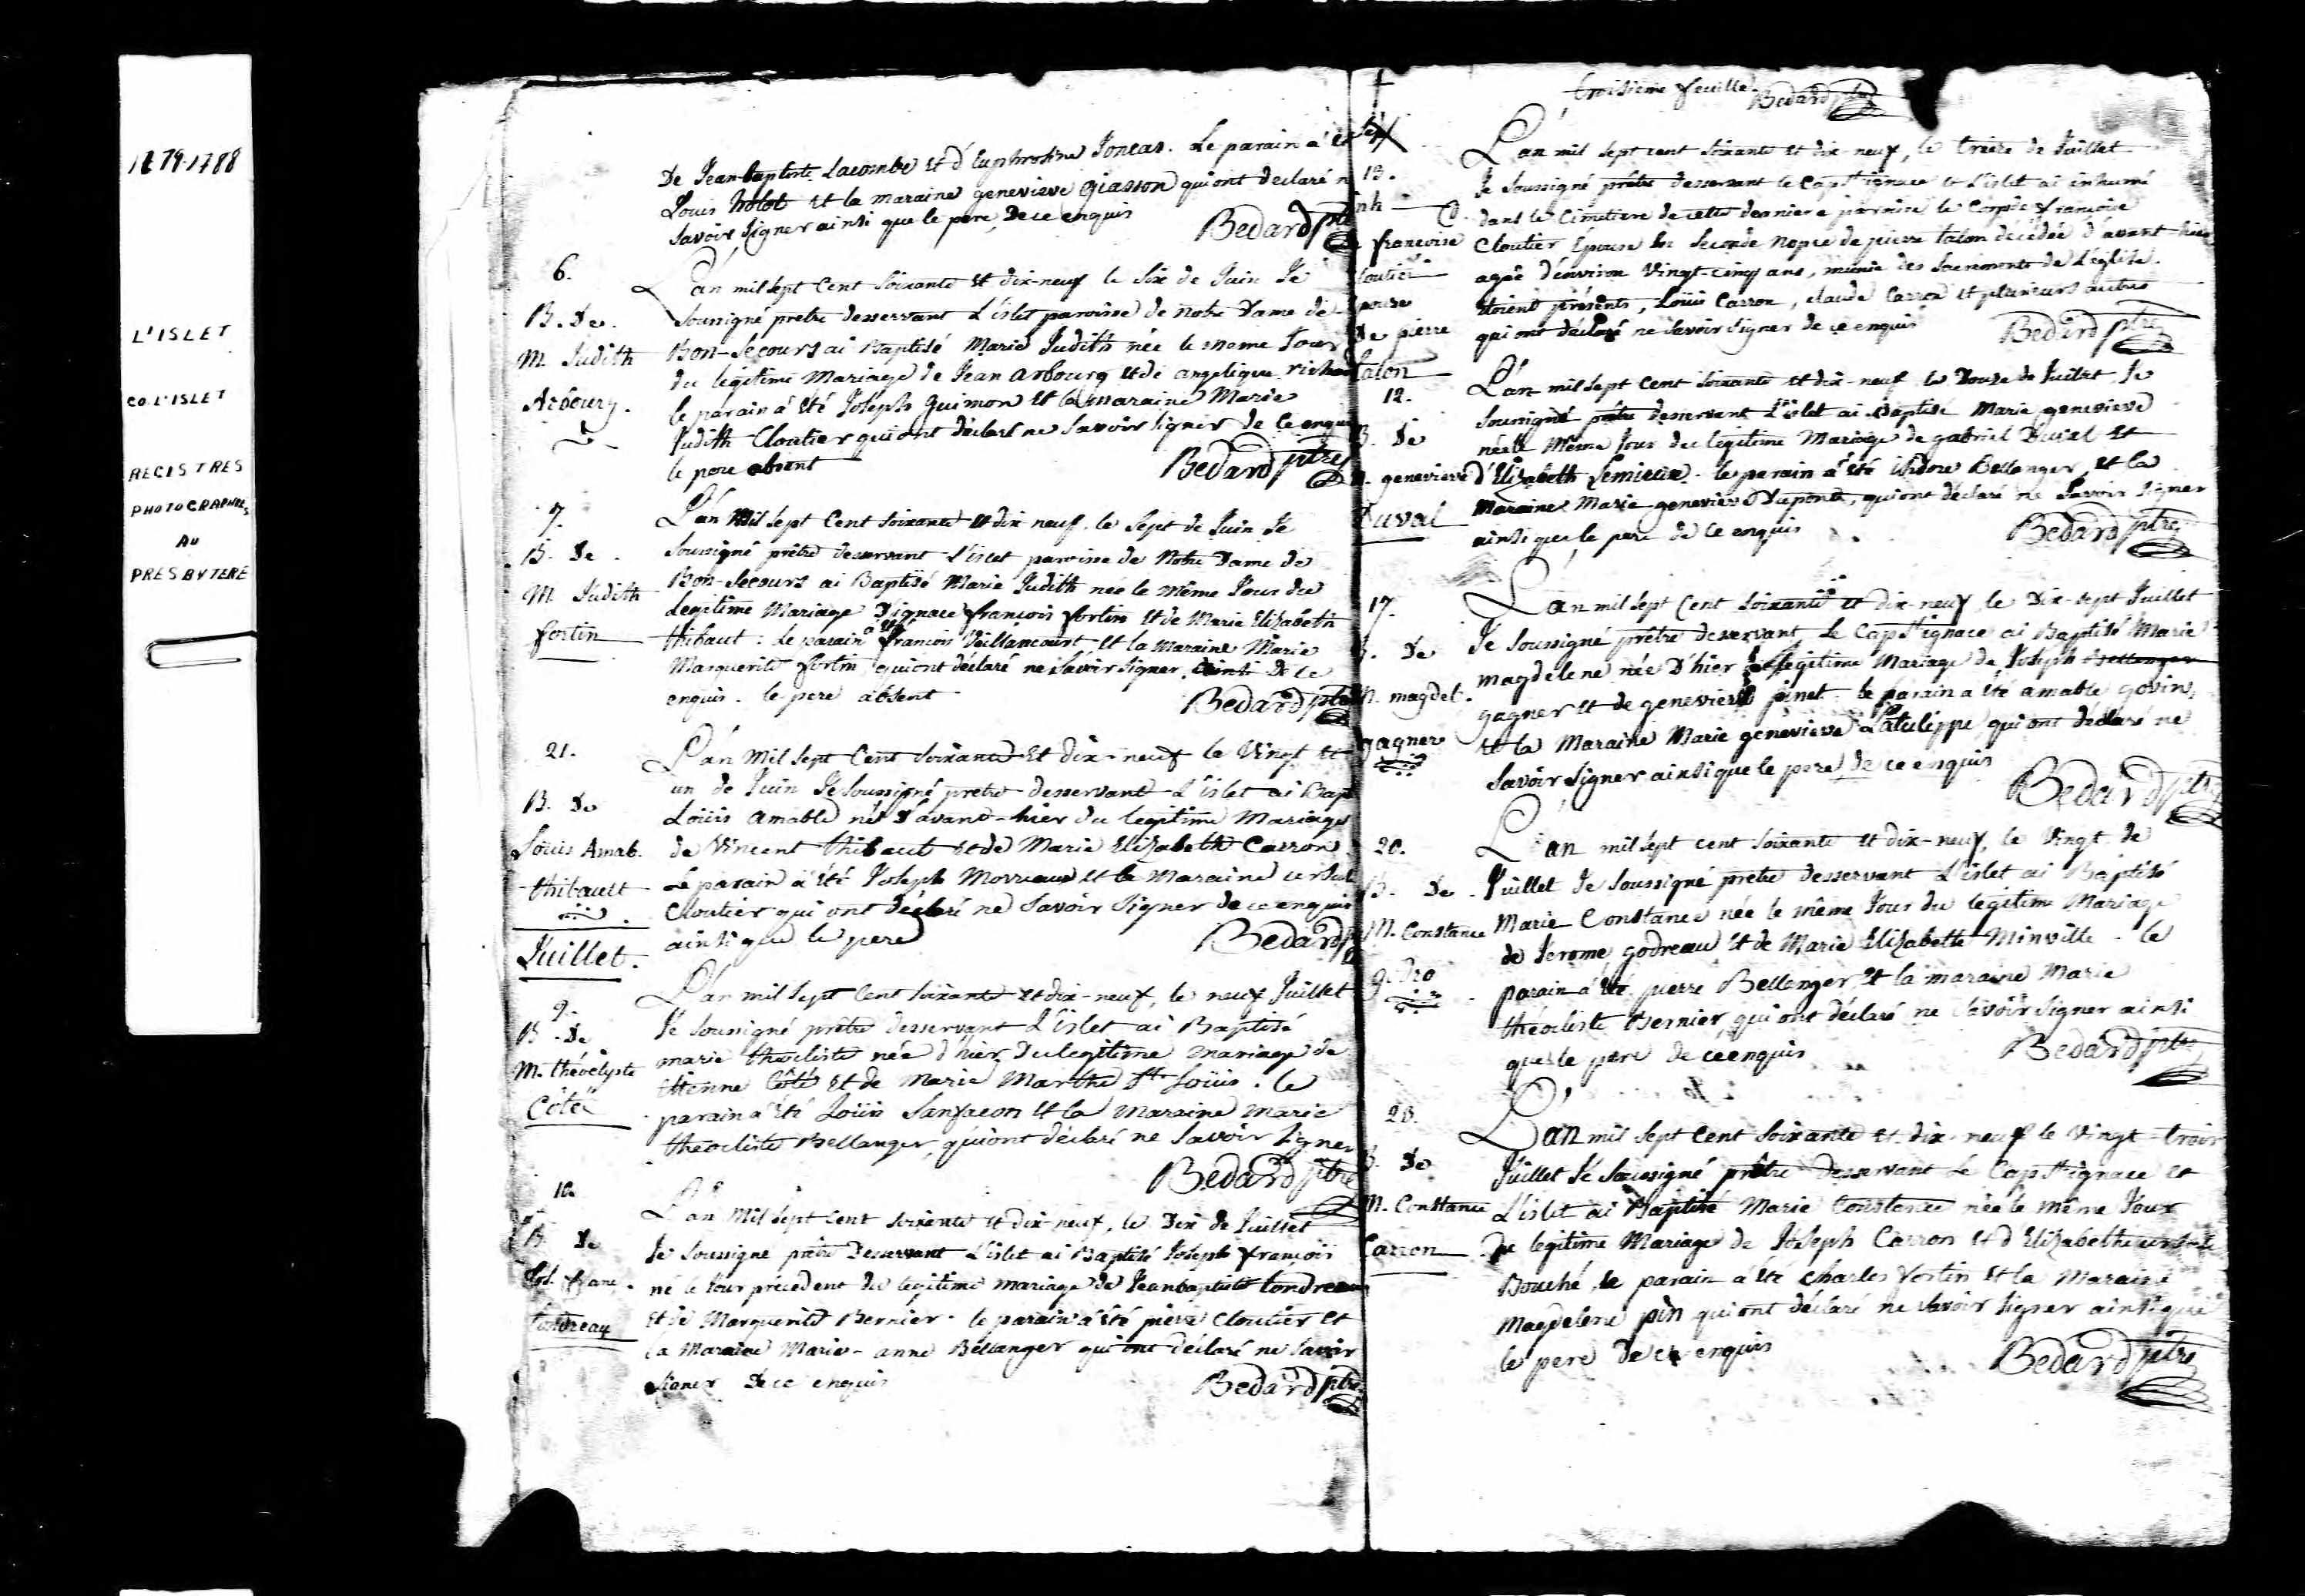 1779-1788
L'ISLET
CO. L'ISLET
REGISTRES
PHOTOGRAPHIES
AU
PRESBYTERE
De Jean baptiste Lacombe et d'Euphrosine Joncas. Le parain a été
Louis holot et la maraine genevieve Giasson qui ont declaré n
Savoir Signer ainsi que le pere, De ce enquis
Bedard ptre
6.
B. De.
M. Judith
Arbourg.
L'an mil Sept Cent Soixante et dix-neuf le Six de Juin Je
Soussigné pretre desservant L'islet paroisse de notre Dame de
Bon-Secours ai Baptisé Marie Judith née le meme Jour
du legitime Mariage de Jean arbourg et de angelique richard
le parain a été Joseph Guimon et la maraine Marie
Judith Cloutier qui ont déclaré ne Savoir Signer de ce enquis
le pere absent
Bedard ptre
7.
B. De.
M. Judith
fortin
L'an Mil Sept Cent Soixante et dix neuf. le Sept de Juin Je
Soussigné prêtre desservant L'islet paroisse de Notre Dame de
Bon-Secours ai Baptisé Marie Judith née le même Jour du
Legitime Mariage D'ignace françois fortin et de Marie Elizabeth
thibaut : Le parain a été françois Vaillancourt et la Maraine Marie
Marguerite fortin qui ont déclaré ne Savoir Signer, De ce
enquis. le pere absent
Bedard ptre
21.
B. De
Louis Amab.
thibault
L'an Mil Sept Cent Soixante Et dix-neuf le Vingt et
un de Juin Je Soussigné pretre desservant L'islet ai Bap
Loüis amable né D'avant-hier du legitime Mariage
de Vincent thibaut et de Marie Elizabeth Carron.
Le parain a été Joseph Morreau et la Maraine ursul
Cloutier qui ont déclaré ne Savoir Signer de ce enquis
ainsi que le pere
Bedard p
Juillet.
9.
B. De
M. théoélyste
Côté
L'an mil Sept Cent Soixante et dix-neuf, le neuf Juillet
Je Soussigné prêtre desservant L'islet ai Baptisé
marie theocliste née d'hier Du legitime mariage de
Etienne Côté et de Marie Marthe St Loüis. le
parain a été Loüis Sanfacon et la maraine marie
theocliste Bellanger, qui ont déclaré ne Savoir Signer
Bedard ptre
10.
B. De
Jos. franc.
tondreau
L'an Mil Sept Cent Soixante et dix-neuf, le Dix de Juillet
Je Soussigné prêtre Desservant L'islet ai Baptisé Joseph françois
né le Jour précedent du legitime mariage de Jean baptiste tondreau
et de Marguerite Bernier. le parain a été pierre Cloutier et
la Maraine Marie-anne Bellanger qui ont déclaré ne Savoir
Signer De ce enquis
Bedard ptre
troisieme feuille. Bedard ptre
13.
françoise
Cloutier
Epouse
De pierre
talon
L'an mil Sept cent Soixante et dix-neuf, le treize de Juillet
Je Soussigné prêtre desservant le Cap St ignace et L'islet ai inhumé
dans le Cimetiere de cette derniere paroisse le Corps de françoise
Cloutier Epouse en Seconde Nopce de pierre talon decédée d'avant-hier
agée d'environ Vingt-cinq ans, munie des Sacrements de L'église.
étoient présents, Loüis Carron, claude Carron et plusieurs autres
qui ont déclaré ne Savoir Signer de ce enquis
Bedard ptre
12.
B. De
M. genevieve
Duval
L'an mil Sept Cent Soixante et dix-neuf le Douze de Juillet Je
Soussigné prêtre desservant L'islet ai Baptisé Marie genevieve
née le Même Jour du legitime Mariage de gabriel Duval Et
d'Elizabeth Lemieux. le parain a été isidore Bellanger et la
Maraine Marie genevieve Dupont, qui ont déclaré ne Savoir Signer
ainsi que le pere de Ce enquis
Bedard ptre
17.
B. De
M. magdel.
gagner
L'an mil Sept Cent Soixante et dix-neuf le Dix-Sept Juillet
Je Soussigné prêtre desservant Le Cap St ignace ai Baptisé Marie
magdelene née D'hier legitime Mariage de Joseph Bellanger
gagner et de genevieve pinet. le parain a été amable govin,
et la Maraine Marie genevieve Latulippe, qui ont déclaré ne
Savoir Signer ainsi que le pere de ce enquis
Bedard ptre
20.
B. De
M. Constance
godro
L'an mil Sept cent Soixante et dix-neuf, le Vingt de
Juillet Je Soussigné prêtre desservant L'islet ai Baptisé
Marie Constance née le même Jour du legitime Mariage
de Jerome godreau et de Marie Elizabeth Minville. le
parain a été pierre Bellanger et la maraine Marie
théocliste Bernier, qui ont déclaré ne Savoir Signer ainsi
que le pere de ce enquis
Bedard ptre
23.
B. De
M. Constance
Carron
L'an mil Sept Cent Soixante et dix-neuf le Vingt-trois
Juillet Je Soussigné prêtre desservant Le Cap St ignace et
L'islet ai Baptisé Marie Constance née le même Jour
Du legitime Mariage de Joseph Carron et d'Elizabethe ursule
Bouché, le parain a été Charles fortin et la Maraine
Magdelene pin qui ont déclaré ne Savoir Signer ainsi que
le pere De ce enquis
Bedard ptre